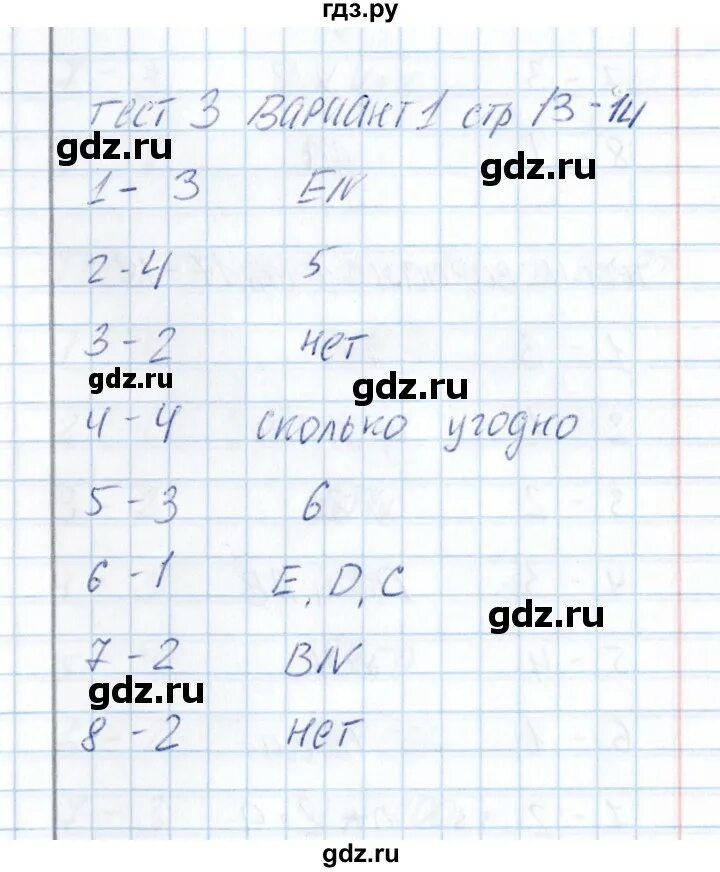 гдз.ру
тест 3 Вариант 1 стр 13-14
gdz.ru
gdz.ru
1 - 3 EN
2 - 4 5
3 - 2 нет
gdz.ru
gdz.ru
4 - 4 сколько угодно
5 - 3 6
6 - 1 E, D, C
gdz.ru
7 - 2 BN
gdz.ru
8 - 2 нет
gdz.ru